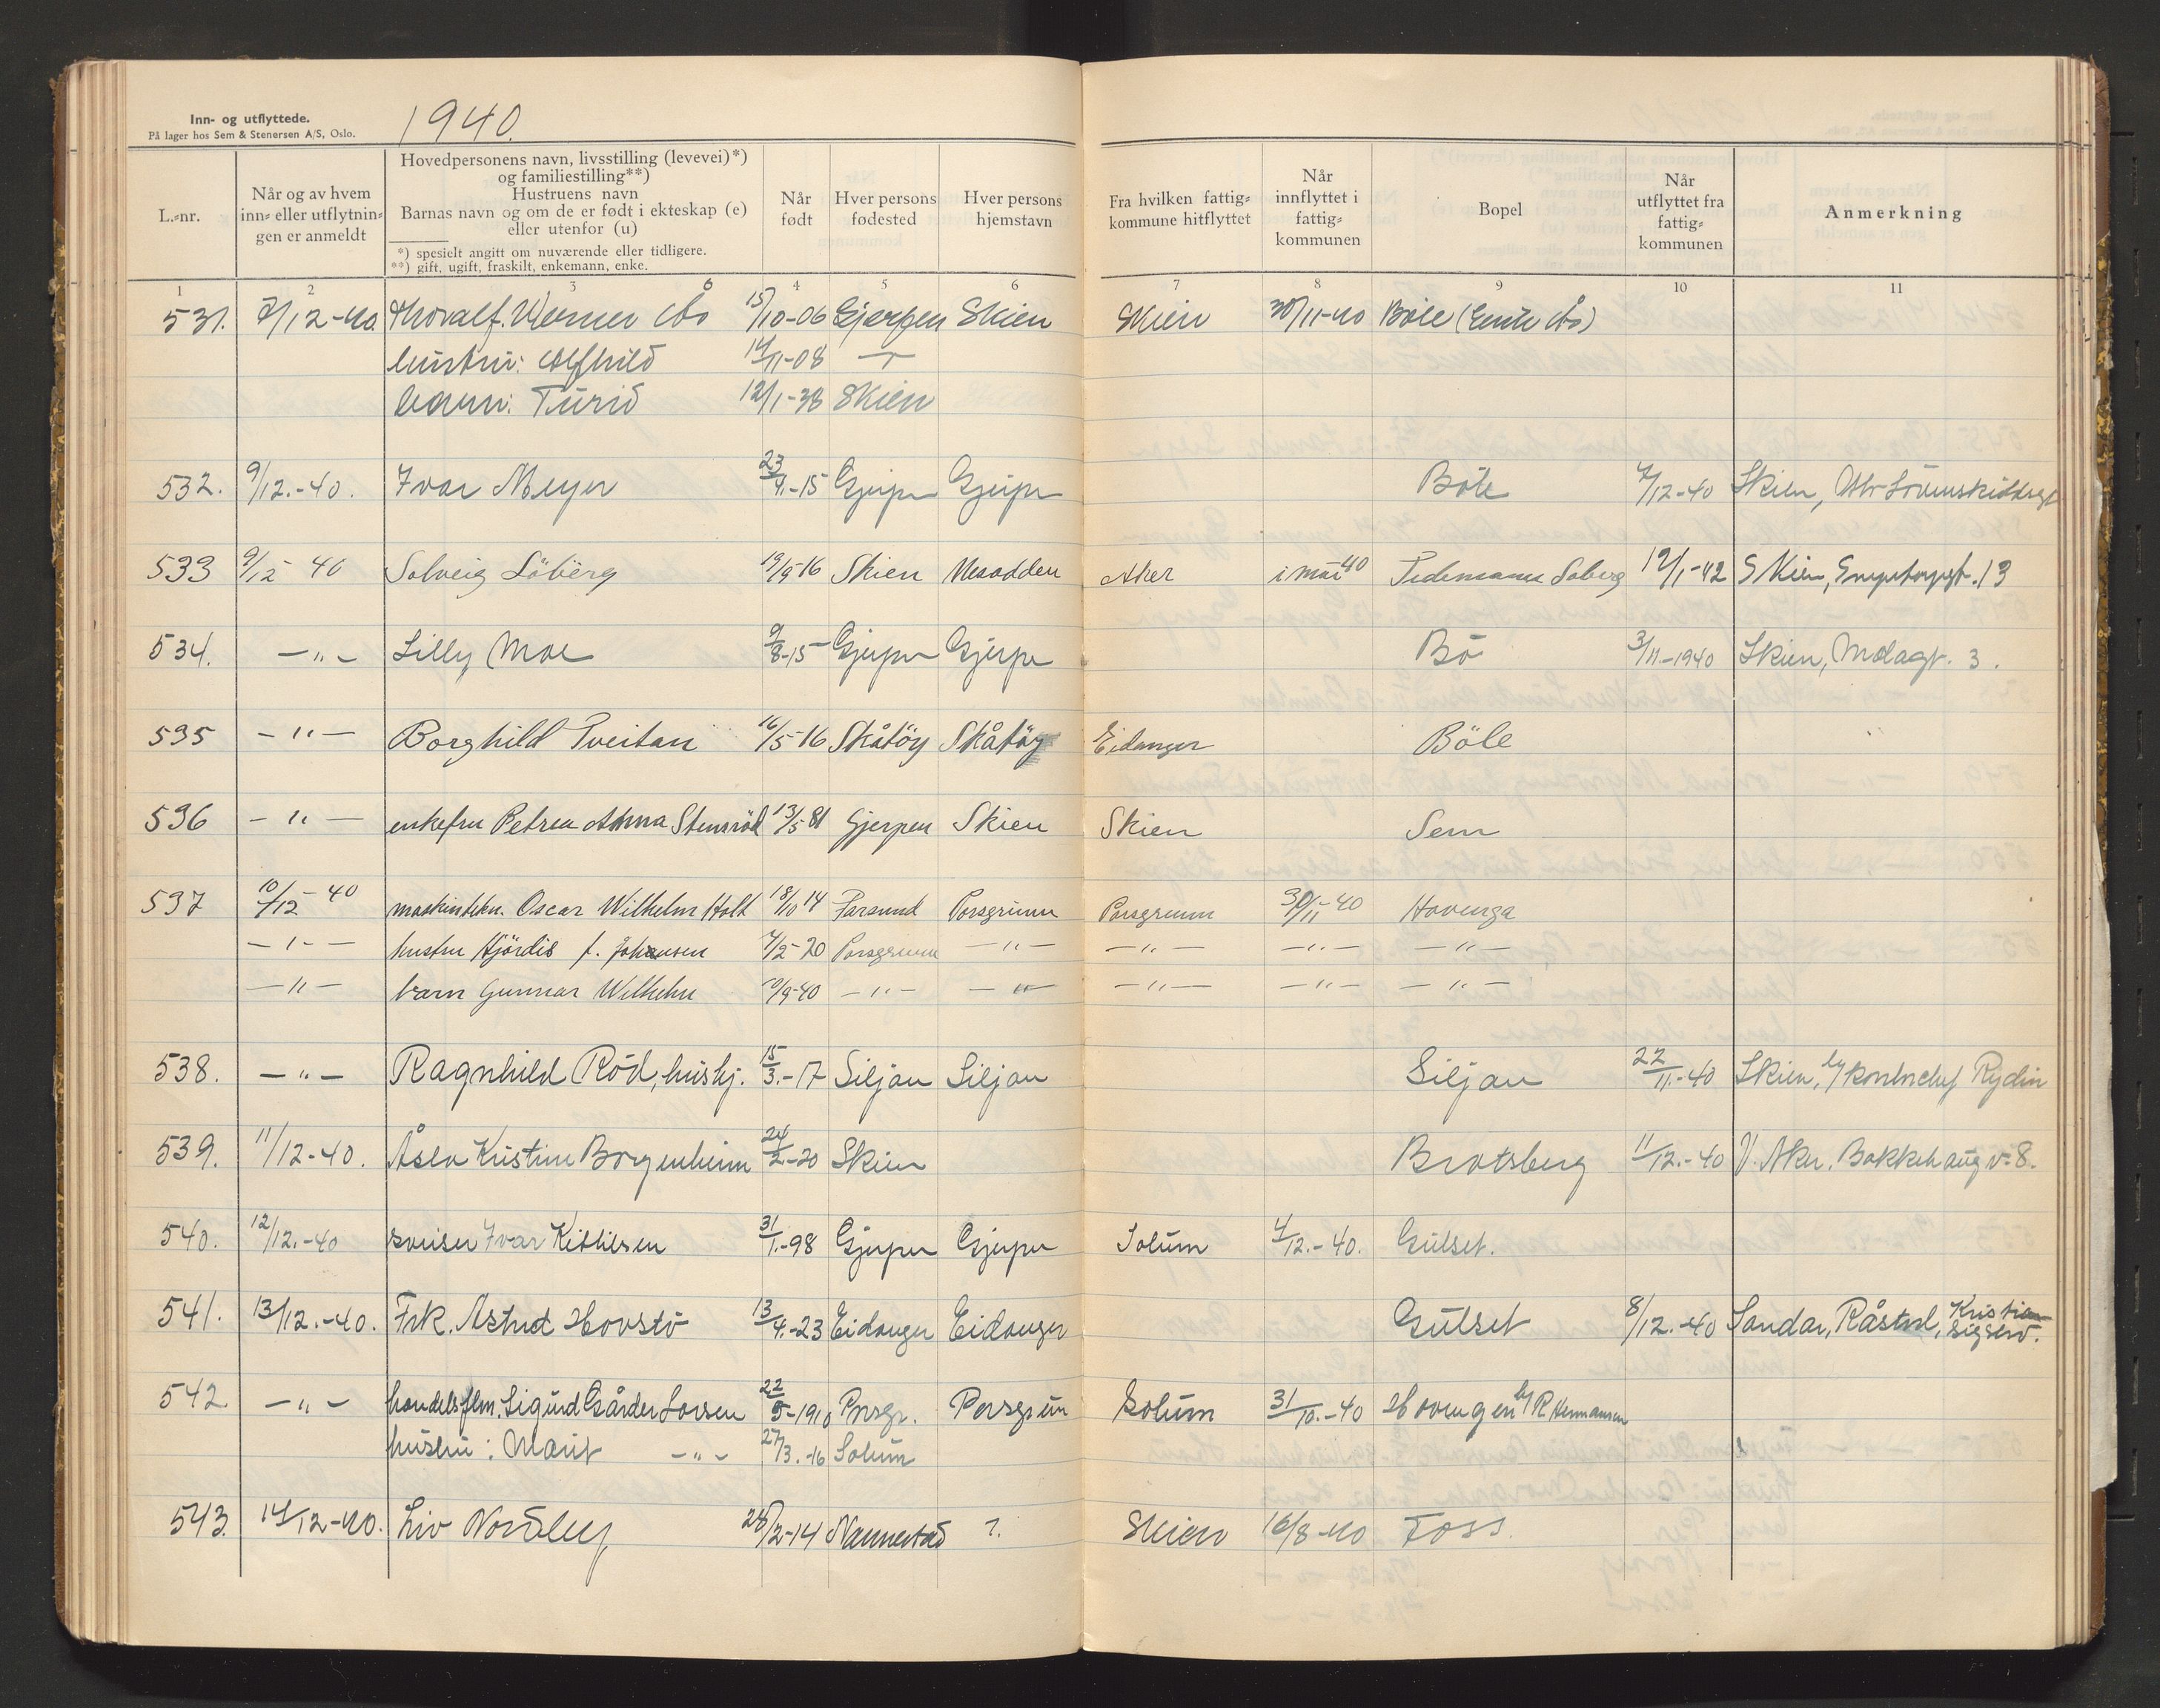 Inn- og utflyttede.
På lager hos Sem & Stenersen A/S, Oslo.
1940.
L.-nr.
Når og av hvem inn- eller utflytningen er anmeldt
Hovedpersonens navn, livsstilling (levevei)*)
og familiestilling**)
Hustruens navn
Barnas navn og om de er født i ekteskap (e)
eller utenfor (u)
*) spesielt angitt om nuværende eller tidligere.
**) gift, ugift, fraskilt, enkemann, enke.
Når født
Hver persons fødested
Hver persons hjemstavn
Fra hvilken fattigkommune hitflyttet
Når innflyttet i fattigkommunen
Bopel
Når utflyttet fra fattigkommunen
Anmerkning
1 2 3 4 5 6 7 8 9 10 11
531. 7/12-40. Thoralf. Werner Bö 15/10-06 Gjerpen Skien Skien 30/11-40 Böle
hustru: Alfhild 14/11-08 -"-
barn: Turid 12/1-38 Skien
532. 9/12.-40. Ivar Meyer 23/4.-15 Gjerpen Gjerpen Böle 7/12-40 Skien,
533 9/12-40 Solveig Löberg 19/9-16 Skien Aker i mai 40 19/1-42 Skien, 13
534. -"- Lilly Moe 9/8-15 Gjerpen Gjerpen Bö 3/11-1940 Skien, Molagt. 3.
535 -"- Borghild Tveitan 16/5-16 Skåtöy Skåtöy Eidanger Böle
536 -"- enkefru Petrea Anna Stensröd 13/5 81 Gjerpen Skien Skien Sem
537 10/12-40 maskintekn. Oscar Wilhelm Holt 18/10 14 Farsund Porsgrunn Porsgrunn 30/11-40 Hovenga
-"- hustru Hjördis f. Johansen 7/2-20 Porsgrunn -"- -"- -"- -"-
-"- barn Gunnar Wilhelm /9-40 -"- -"- -"- -"- -"-
538. -"- Ragnhild Röd, hushj. 15/3.-17 Siljan Siljan Siljan 22/11.-40 Skien, b/ kontorchef Rydin
539. 11/12-40. Åsta Kristine Borgenheim 24/2-20 Skien Bratsberg 11/12.-40 V. Aker. Bakkehaug v. 8.
540. 12/12.-40 Ivar Kittilsen 31/1.-98 Gjerpen Gjerpen Solum 4/12.-40. Gulset.
541. 13/12.-40. Frk. Astrid Hovstö 13/4.-23 Eidanger Eidanger Gulset 8/12.-40 Sandar, Råstad,
542 -"- handelsflm. Sigurd Gårder Larsen 22/5-1910 Porsgr. Porsgrun Solum 31/10.-40 Hovengen b/ R Hermansen
hustru: Marit -"- 27/3.-16 Solum
543. 14/12-40. Liv Nordby 28/2-14 Nannestad ?. Skien 16/8-40 Foss.